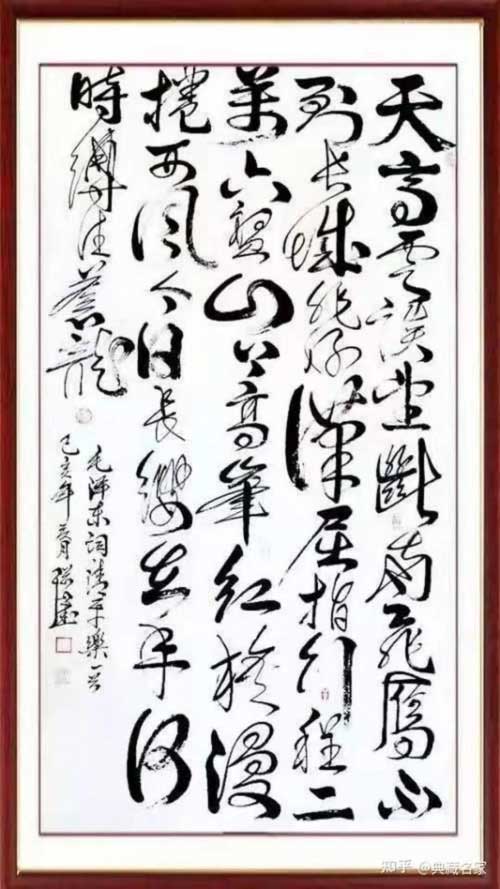 天高雲淡望斷南飛鴈不
到長城非好漢屈指行程二
萬六盤山上高峯紅旗漫
捲西風今日長纓在手何
時縛住蒼龍
毛泽东詞清平樂一首
己亥年
知乎 @典藏名家